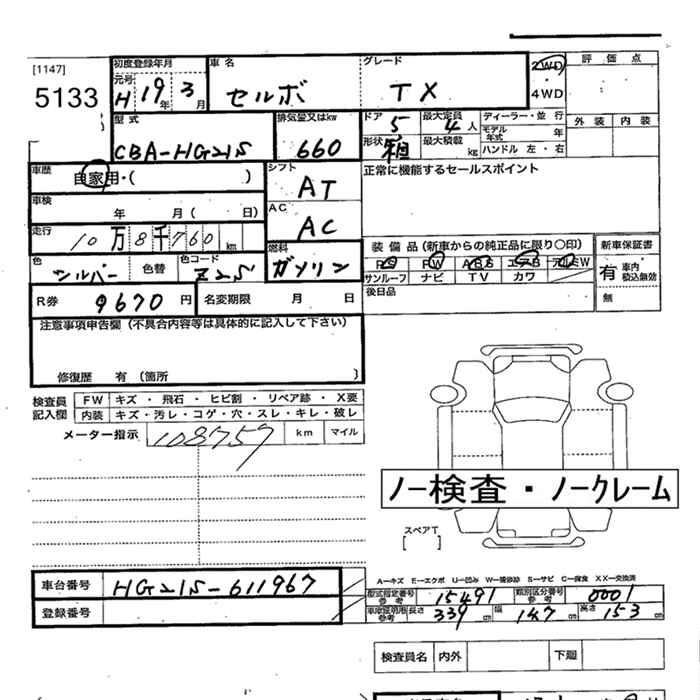 [1147]
5133
初度登録年月 車名 グレード 2WD 評価点
元号 H 19年 3月 セルボ TX 4WD 外装 内装
型式 排気量又はkw ドア 5 最大定員 4人 ディーラー・並行
モデル年式 年
CBA-HG21S 660 形状 最大積載 kg ハンドル 左・右
車歴 自家用・( ) シフト AT 正常に機能するセールスポイント
車検 年 月( 日) AC AC
走行 10万8千760km 燃料 ガソリン 装備品(新車からの純正品に限り〇印) 新車保証書
色 シルバー 色替 色コード Z2S PS PW ABS エアB アルミW 有 車内積込無効
サンルーフ ナビ TV カワ 無
R券 9670円 名変期限 月 日 後日品
注意事項申告欄(不具合内容等は具体的に記入して下さい)
修復歴 有(箇所 )
検査員記入欄 FW キズ・飛石・ヒビ割・リペア跡・X要
内装 キズ・汚レ・コゲ・穴・スレ・キレ・破レ
メーター指示 108757 km マイル
ノー検査・ノークレーム
スペアT
[ ]
車台番号 HG21S-611967 A-キズ E-エクボ U-凹み W-補修跡 S-サビ C-腐食 XX-交換済
型式指定番号参考 15491 類別区分番号参考 0001
登録番号 車庫証明用参考 長さ 339cm 幅 147cm 高さ 153cm
検査員名 内外 下廻